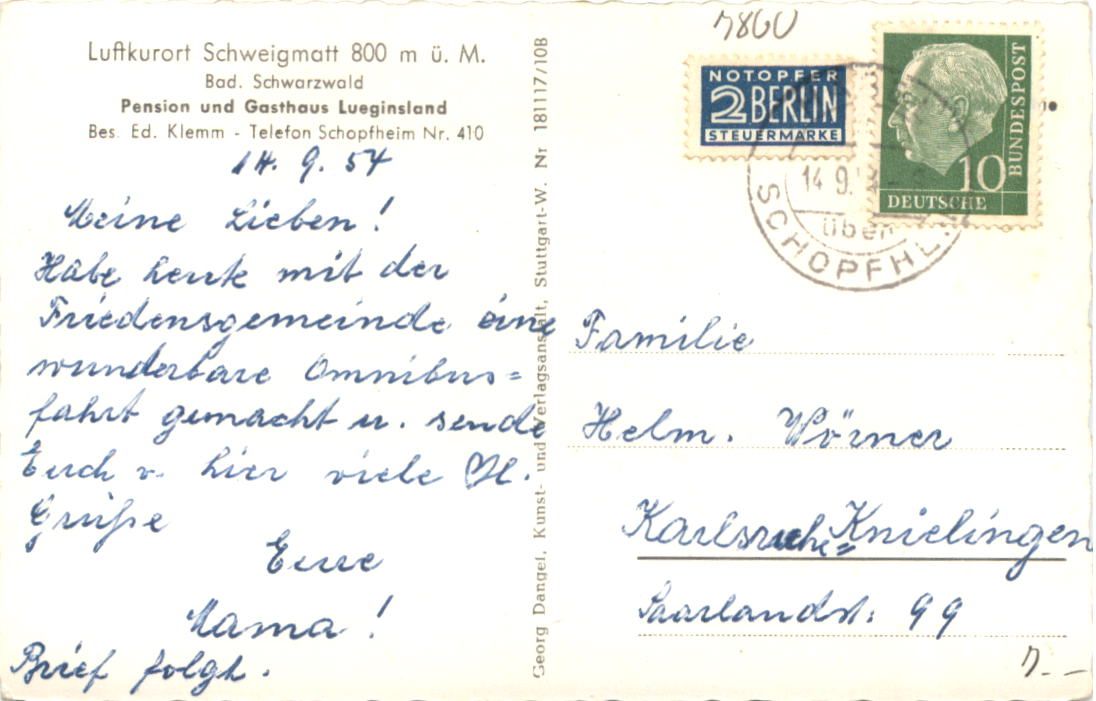 Luftkurort Schweigmatt 800 m ü. M.
Bad. Schwarzwald
Pension und Gasthaus Lueginsland
Bes. Ed. Klemm - Telefon Schopfheim Nr. 410
14. 9. 54
Meine Lieben!
Habe heute mit der
Friedensgemeinde eine
wunderbare Omnibus=
fahrt gemacht u. sende
Euch v. hier viele Hl.
Grüße
Eure
Mama!
Brief folgt.
Georg Dangel, Kunst- und Verlagsanstalt, Stuttgart-W. Nr 181117/10B
7800
NOTOPFER
2 BERLIN
STEUERMARKE
DEUTSCHE
BUNDESPOST
10
14 9.
über
SCHOPFHE
Familie
Helm. Wörner
Karlsruhe=Knielingen
Saarlandst: 99
7.--